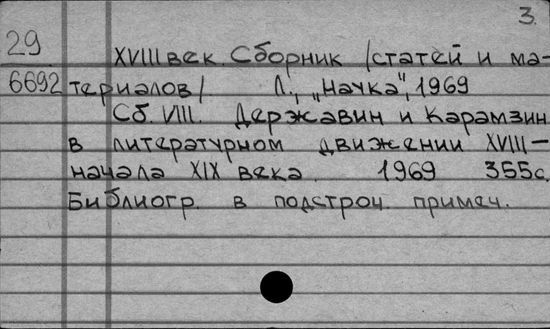 3.
29 XVIII век Сборник /статей и ма-
6692 териалов/ Л., „Наука", 1969
Сб. VIII. Державин и Карамзин
в литературном движении XVIII -
начала XIX века. 1969 355с.
Библиогр. в подстроч. примеч.